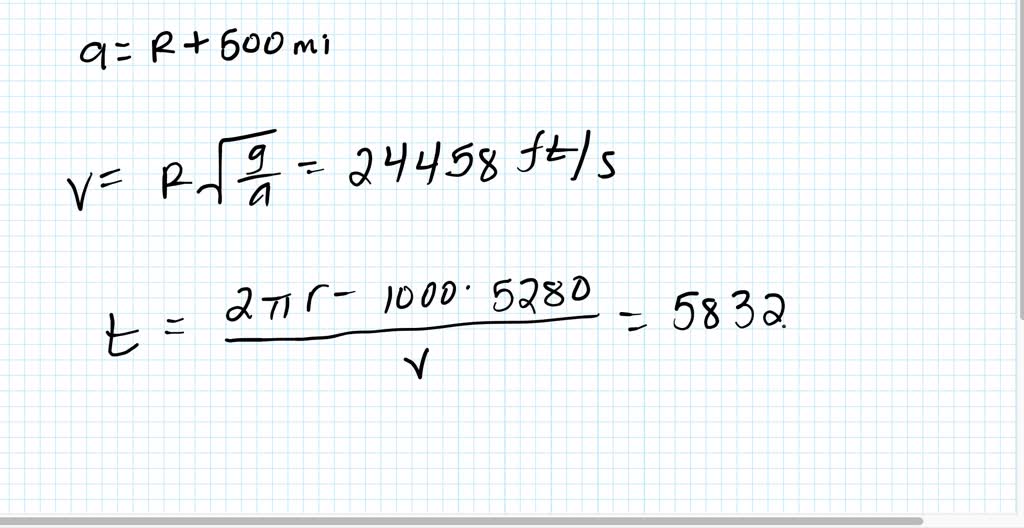 a = R + 500 mi
v = R √(g/a) = 24458 ft/s
t = (2πr - 1000 · 5280)/v = 5832.